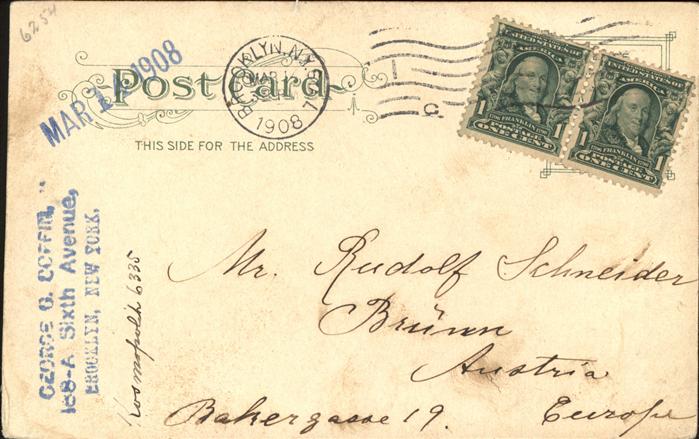 6254
MAR 1 1908
Post Card
BROOKLYN, N.Y.
MAR
1908
C.
THIS SIDE FOR THE ADDRESS
UNITED STATES OF AMERICA
1 FRANKLIN 1
POSTAGE
ONE CENT
UNITED STATES OF AMERICA
1 FRANKLIN 1
POSTAGE
ONE CENT
GEORGE G. COFFIN,
168-A Sixth Avenue,
BROOKLYN, NEW YORK.
Kosmopolit 6335
Mr. Rudolf Schneider
Brünn
Austria
Bakergasse 19. Europe